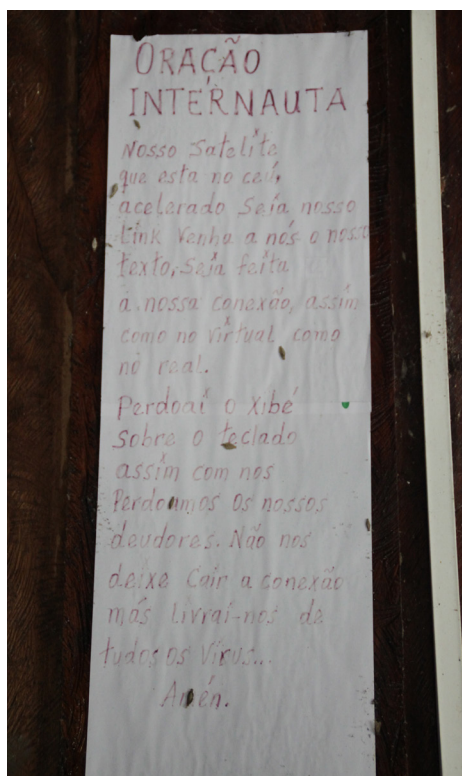 ORAÇÃO
INTERNAUTA
Nosso Satelite
que esta no ceú,
acelerado Seja nosso
Link Venha a nós o nosso
texto, Seja feita
a nossa conexão, assim
como no virtual como
no real.
Perdoai o Xibé
Sobre o teclado
assim com nos
Perdoamos os nossos
devdores. Não nos
deixe Cair a conexão
más Livrai-nos de
tudos os Vírus...
Amén.